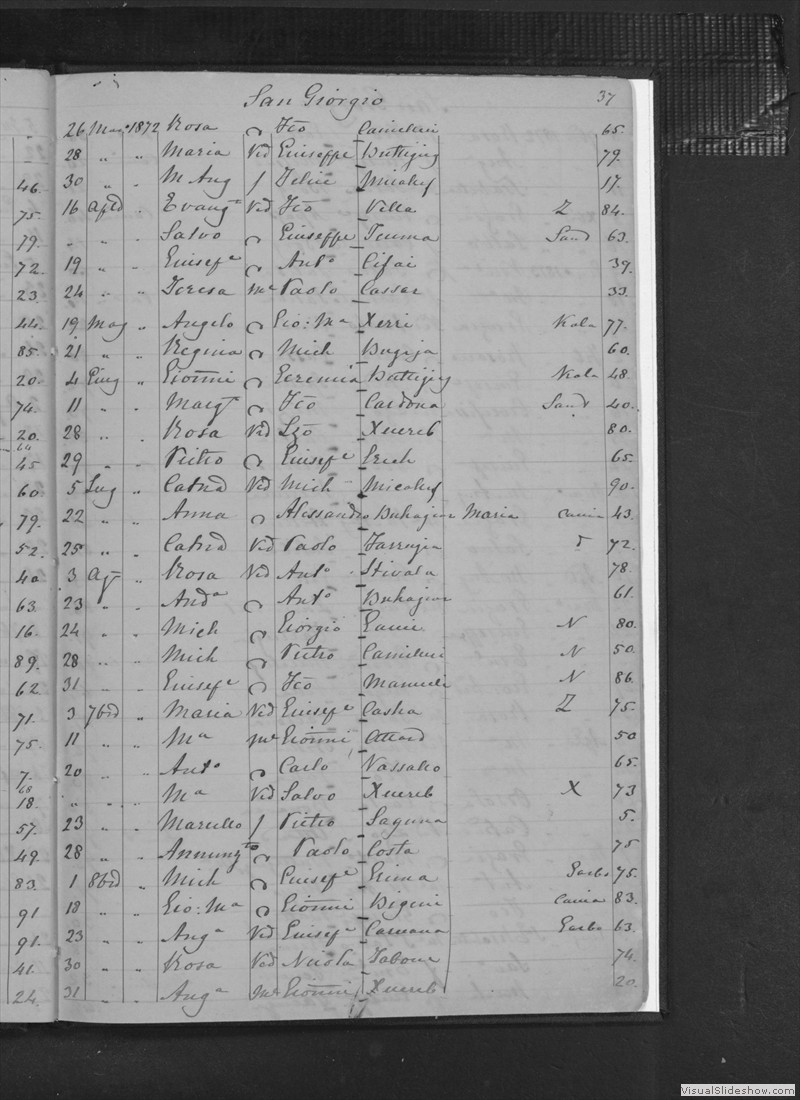 San Giorgio 37
26 Mag. 1872 Rosa Fco Camilleri 65.
28 " " Maria Vid Giuseppe Buttigieg 79.
46. 30 " " M Ang f Felice Micalef 17.
75. 16 " Evang Vid Fco Vella Z 84.
79. " " Salvo Giuseppe Teuma Sand 63.
72. 19 " " Giusefe Anto 39.
23. 24 " " Teresa me Paolo Cassar 33.
44. 19 Mag " Angelo Gio: Ma Xerri Kala 77.
85. 21 " " Regina Mich Bugeja 60.
20. 4 Giug " Gionni Geremia Buttigieg Kala 48.
74. 11 " . Marg Fco Cardona Sand 40.
20. 28 " . Rosa Vid Lzo Xuereb 80.
45. 29 " . Pietro Giusefe Grech 65.
60. 5 Lug " Catna Vid Mich Micalef 90.
79. 22 " " Anna Alessandro Buhagiar Maria 43.
52. 25 " " Catna Vid Paolo Farrugia 72.
40. 3 Ag " Rosa Vid Anto Stivala 78.
63. 23 " . Anda Anto Buhagiar 61.
16. 24 " . Mich Giorgio Gauci N 80.
89. 28 " " Mich Pietro Camilleri N 50.
62. 31 " . Giusefe Fco N 86.
71. 3 7bre " Maria Vid Giusefe Casha Z 75.
75. 11 " . Ma me Gionni Attard 50
7. 20 " " Anto Carlo Vassallo 65.
68
18. " " " Ma Vid Salvo Xuereb X 73
57. 23 " . Marcello f Pietro Laguna 5.
49. 28 " " Paolo Costa 75
83. 1 8bre " Mich Giusefe Grima Garbo 75.
91 18 " " Gio: Ma Gionni Bigeni 83.
91. 23 " " Anga Vid Giusefe Camana Garbo 63.
41. 30 " " Rosa Vid Nicola Tabone 74.
24. 31 " " Anga me Gionni Xuereb 20.
VisualSlideshow.com